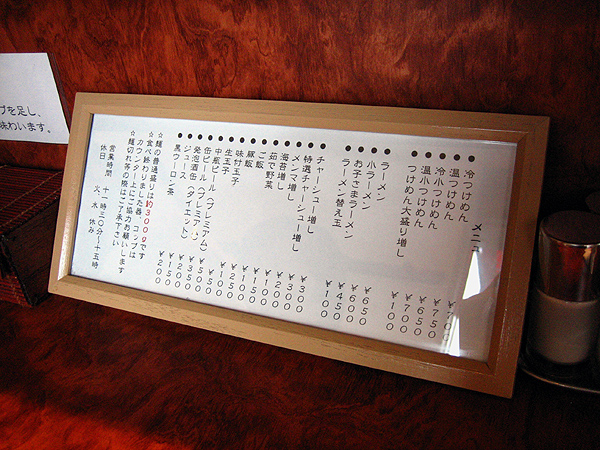 メニュー
●冷つけめん
●温つけめん ￥７５０
●冷小つけめん ￥６５０
●温小つけめん ￥７００
つけめん大盛り増し ￥１００
●ラーメン ￥６５０
●小ラーメン ￥６００
●お子さまラーメン ￥４５０
●ラーメン替え玉 ￥１００
●チャーシュー増し
●特選チャーシュー増し ￥３００
●メンマ増し
●海苔増し
●茹で野菜
●ご飯
●豚飯
●味付玉子
●生玉子
●中瓶ビール
●缶ビール（プレミアム）
●発泡酒缶
●ジュース（ダイエット） ￥１５０
●黒ウーロン茶 ￥２００
☆麺の普通盛りは約３００ｇです
☆食べ終わりました器、コップは
カウンター上にご協力お願いします
☆麺切れ等の際はご了承下さい
営業時間 十一時三〇分～十五時、
休日 火、木休み
を足し、
味わいます。